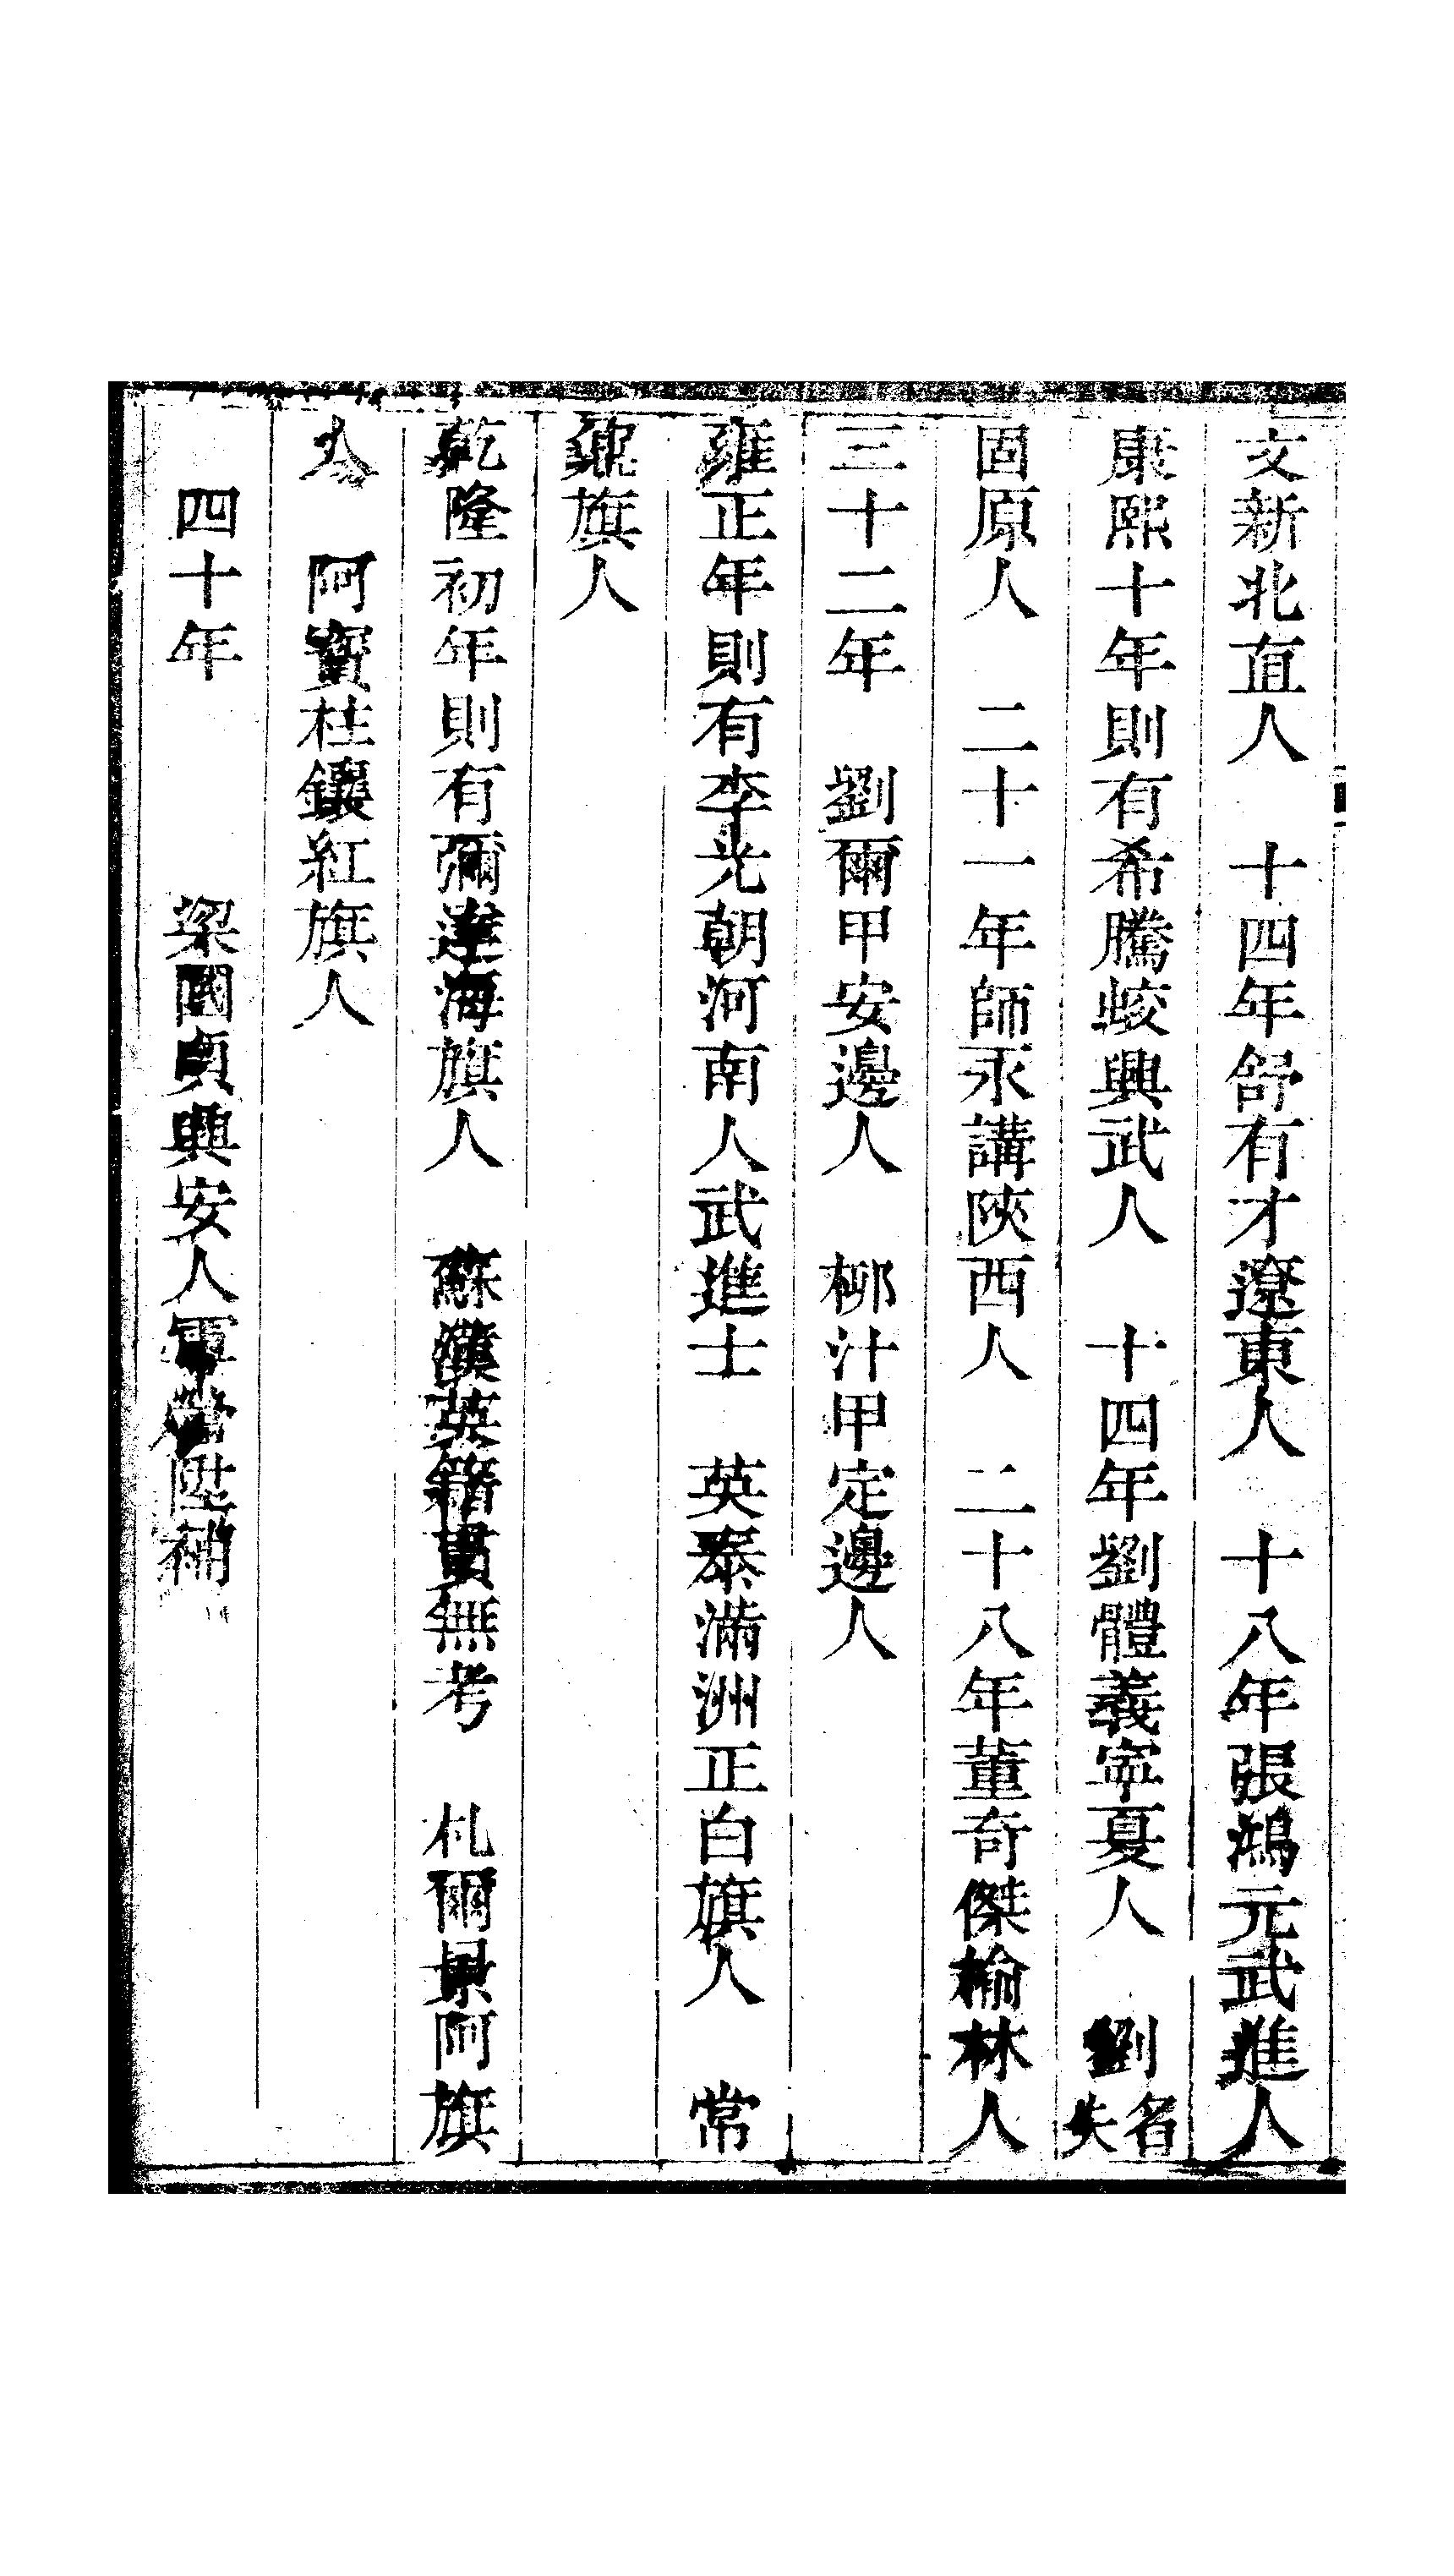 文新北直人　十四年舒有才遼東人　十八年張鴻元武進人
康熙十年則有希騰蛟興武人　十四年劉體義寧夏人　劉失名
固原人　二十一年師永講陝西人　二十八年董奇傑榆林人
三十二年　劉爾甲安邊人　柳汁甲定邊人
雍正年則有李光朝河南人武進士　英泰滿洲正白旗人　常
旗人
乾隆初年則有彌達海旗人　蘇漢英籍貫無考　札爾景阿旗
人　阿寶柱鑲紅旗人
四十年　梁國貞興安人軍營陞補